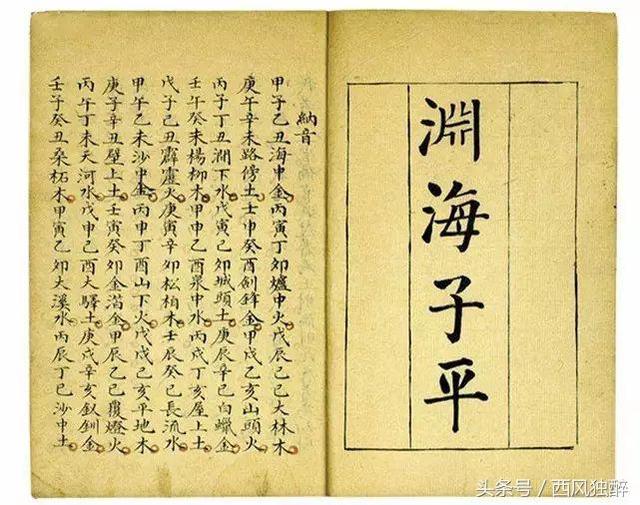 淵海子平
納音
甲子乙丑海中金丙寅丁卯爐中火戊辰己巳大林木
庚午辛未路傍土壬申癸酉劍鋒金甲戌乙亥山頭火
丙子丁丑澗下水戊寅己卯城頭土庚辰辛巳白蠟金
壬午癸未楊柳木甲申乙酉泉中水丙戌丁亥屋上土
戊子己丑霹靂火庚寅辛卯松柏木壬辰癸巳長流水
甲午乙未沙中金丙申丁酉山下火戊戌己亥平地木
庚子辛丑壁上土壬寅癸卯金金甲辰乙巳覆燈火
丙午丁未天河水戊申己酉大驛土庚戌辛亥釵釧金
壬子癸丑桑柘木甲寅乙卯大溪水丙辰丁巳沙中土
头条号 / 西风独醉